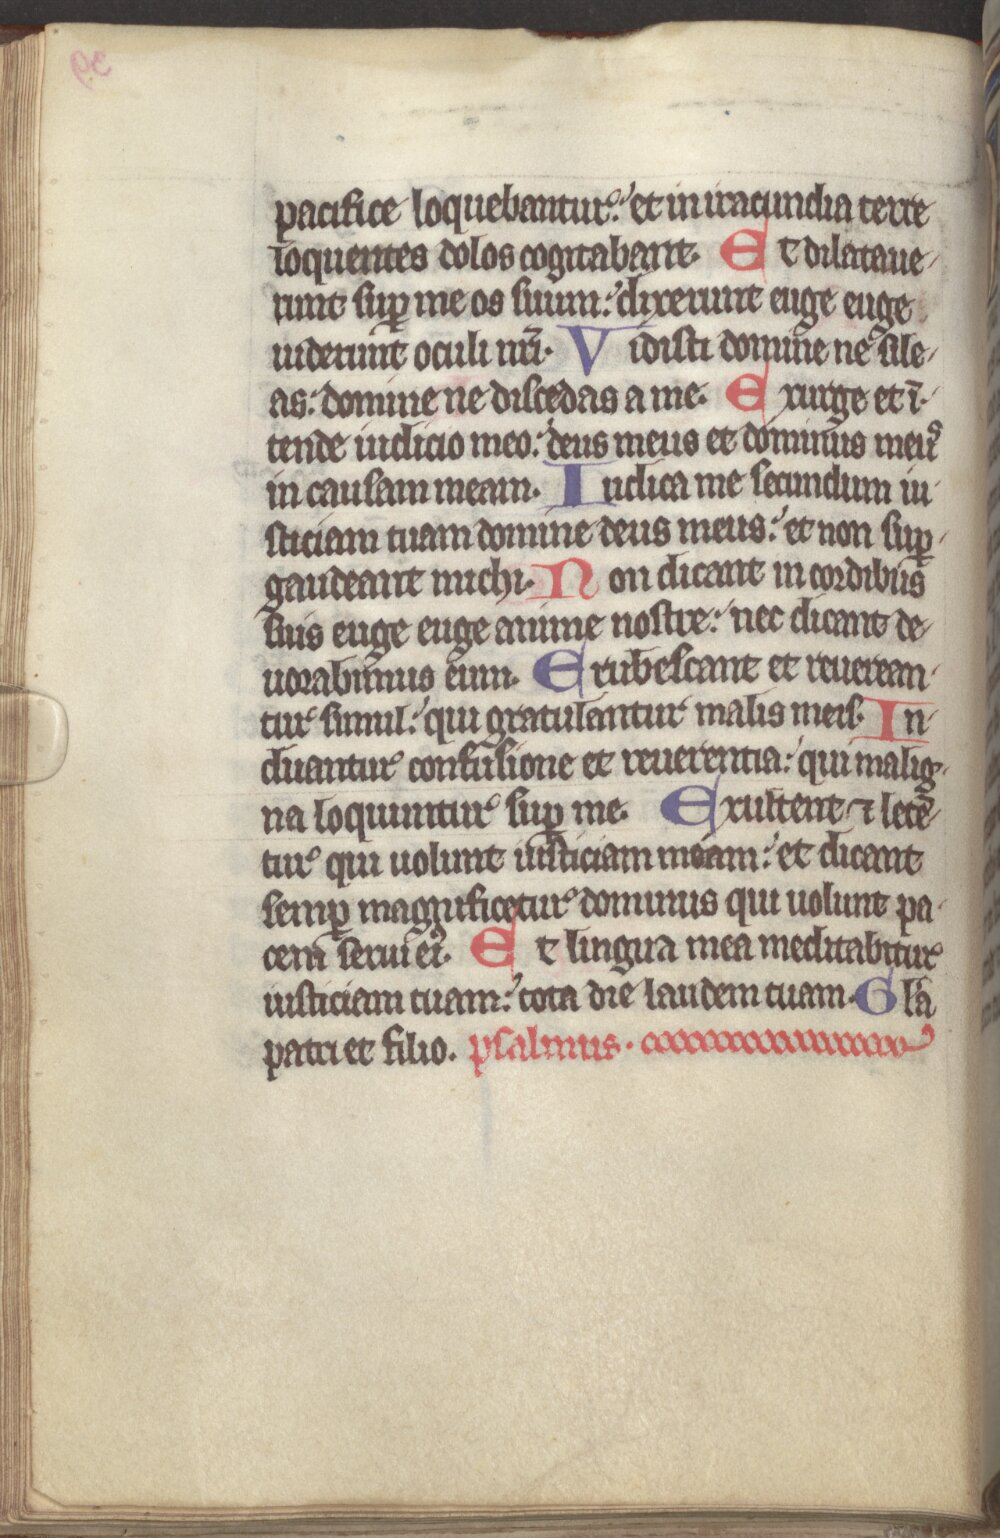 pacifice loquebantur: et in iracundia terre
loquentes dolos cogitabant. Et dilataue-
runt sup̱ me os suum: dixerunt euge euge
uiderunt oculi nr̄i. Vidisti domine ne sile-
as: domine ne discedas a me. Exurge et ī-
tende iudicio meo: deus meus et dominus meꝰ
in causam meam. Iudica me secundum iu-
sticiam tuam domine deus meus: et non sup̱-
gaudeant michi. Non dicant in cordibus
suis euge euge anime nostre: nec dicant de-
uorabimus eum. Erubescant et reuerean-
tur simul: qui gratulantur malis meis. In-
duantur confusione et reuerentia: qui malig-
na loquuntur sup̱ me. Exultent ⁊ letē-
tur qui uolunt iusticiam meam: et dicant
semp̱ magnificetur dominus qui uolunt pa-
cem serui eiꝰ. Et lingua mea meditabitur
iusticiam tuam: tota die laudem tuam. Gl̄a
patri et filio. psalmus.